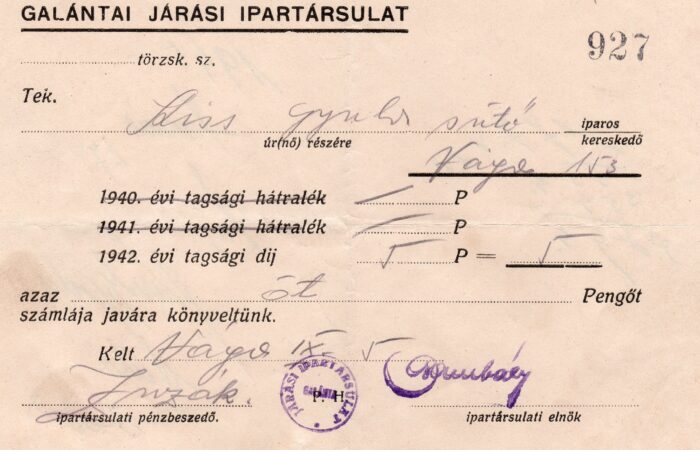 GALÁNTAI JÁRÁSI IPARTÁRSULAT
927
törzsk. sz.
Tek.
Kiss Gyula sütő iparos
kereskedő
úr(nő) részére
Vága 153
1940. évi tagsági hátralék P
1941. évi tagsági hátralék P
1942. évi tagsági dij 5 P = 5
azaz öt Pengőt
számlája javára könyveltünk.
Kelt Vága IX. 5
JÁRÁSI IPARTÁRSULAT
GALÁNTA
P. H.
ipartársulati pénzbeszedő.
ipartársulati elnök